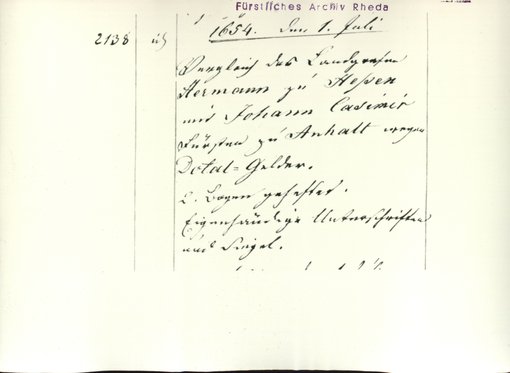 Fürstliches Archiv Rheda
1654. den 1. Juli
2138
Vergleich des Landgrafen
Hermann zu Hessen
mit Johann Casimir
Fürsten zu Anhalt wegen
Dotal=Gelder.
2. Bogen geheftet.
Eigenhändige Unterschriften
und Siegel.